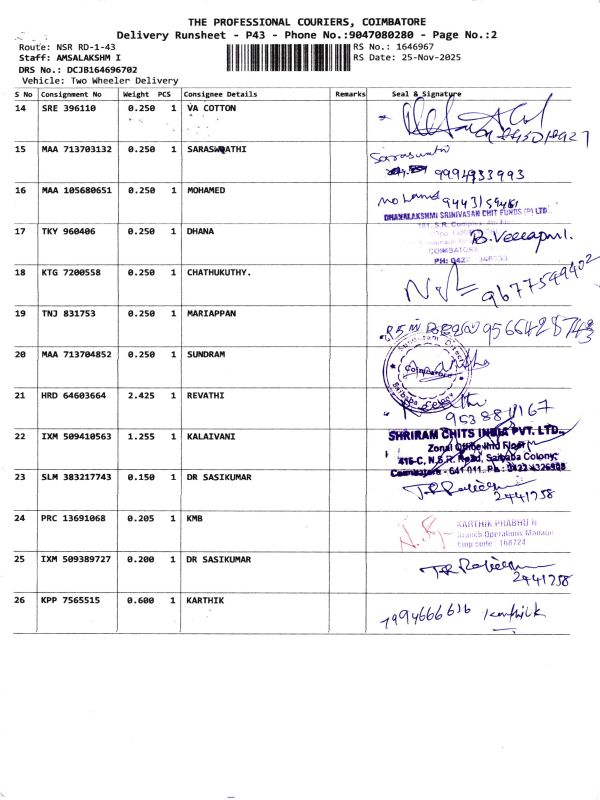 THE PROFESSIONAL COURIERS, COIMBATORE
Delivery Runsheet - P43 - Phone No.:9047080280 - Page No.:2
Route: NSR RD-1-43
RS No.: 1646967
Staff: AMSALAKSHM I
RS Date: 25-Nov-2025
DRS No.: DCJB164696702
Vehicle: Two Wheeler Delivery
S No Consignment No Weight PCS Consignee Details Remarks Seal & Signature
14 SRE 396110 0.250 1 VA COTTON
15 MAA 713703132 0.250 1 SARASWATHI
Saraswathi
9994933993
16 MAA 105680651 0.250 1 MOHAMED
DHANALAKSHMI SRINIVASAN CHIT FUNDS (P) LTD.,
17 TKY 960406 0.250 1 DHANA
COIMBATORE
PH: 0422
18 KTG 7200558 0.250 1 CHATHUKUTHY.
9677549402
19 TNJ 831753 0.250 1 MARIAPPAN
20 MAA 713704852 0.250 1 SUNDRAM
Coimbatore
Saibaba Colony
21 HRD 64603664 2.425 1 REVATHI
22 IXM 509410563 1.255 1 KALAIVANI
SHRIRAM CHITS INDIA PVT. LTD.,
Zonal Office IInd Floor
416-C, N.S.R. Road, Saibaba Colony,
Coimbatore - 641 011. Ph : 0422 4326908
23 SLM 383217743 0.150 1 DR SASIKUMAR
2441758
24 PRC 13691068 0.205 1 KMB
KARTHIK PRABHU N
Branch Operations Manager
Emp code : 168724
25 IXM 509389727 0.200 1 DR SASIKUMAR
2441758
26 KPP 7565515 0.600 1 KARTHIK
7994666616 Karthik